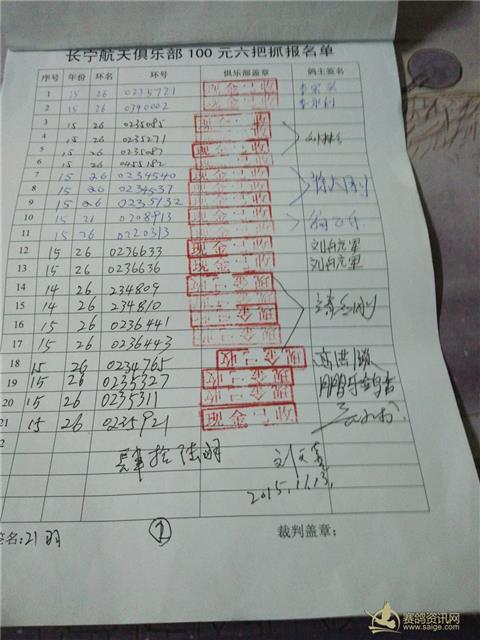 长宁航天俱乐部100元六把抓报名单
序号 年份 环名 环号 俱乐部盖章 鸽主签名
1 15 26 0235721 现金已收
2 15 26 0390002 现金已收
3 15 26 0235085 现金已收
4 15 26 0235271 现金已收
5 15 26 0235087 现金已收
6 15 26 0455182 现金已收
7 15 26 0234540 现金已收
8 15 26 0234537 现金已收
9 15 26 0235132 现金已收
10 15 26 0208913 现金已收
11 15 26 0220313 现金已收
12 15 26 0236633 现金已收
13 15 26 0236636 现金已收
14 15 26 234809 现金已收
15 15 26 234810 现金已收
16 15 26 0236441 现金已收
17 15 26 0236443 现金已收
18 15 26 0234765 现金已收
19 15 26 0235327 现金已收
20 15 26 0235311 现金已收
21 15 26 0235921 现金已收
2
2015.11.13.
签名:21羽 ① 裁判盖章:
赛鸽资讯网
www.saige.com